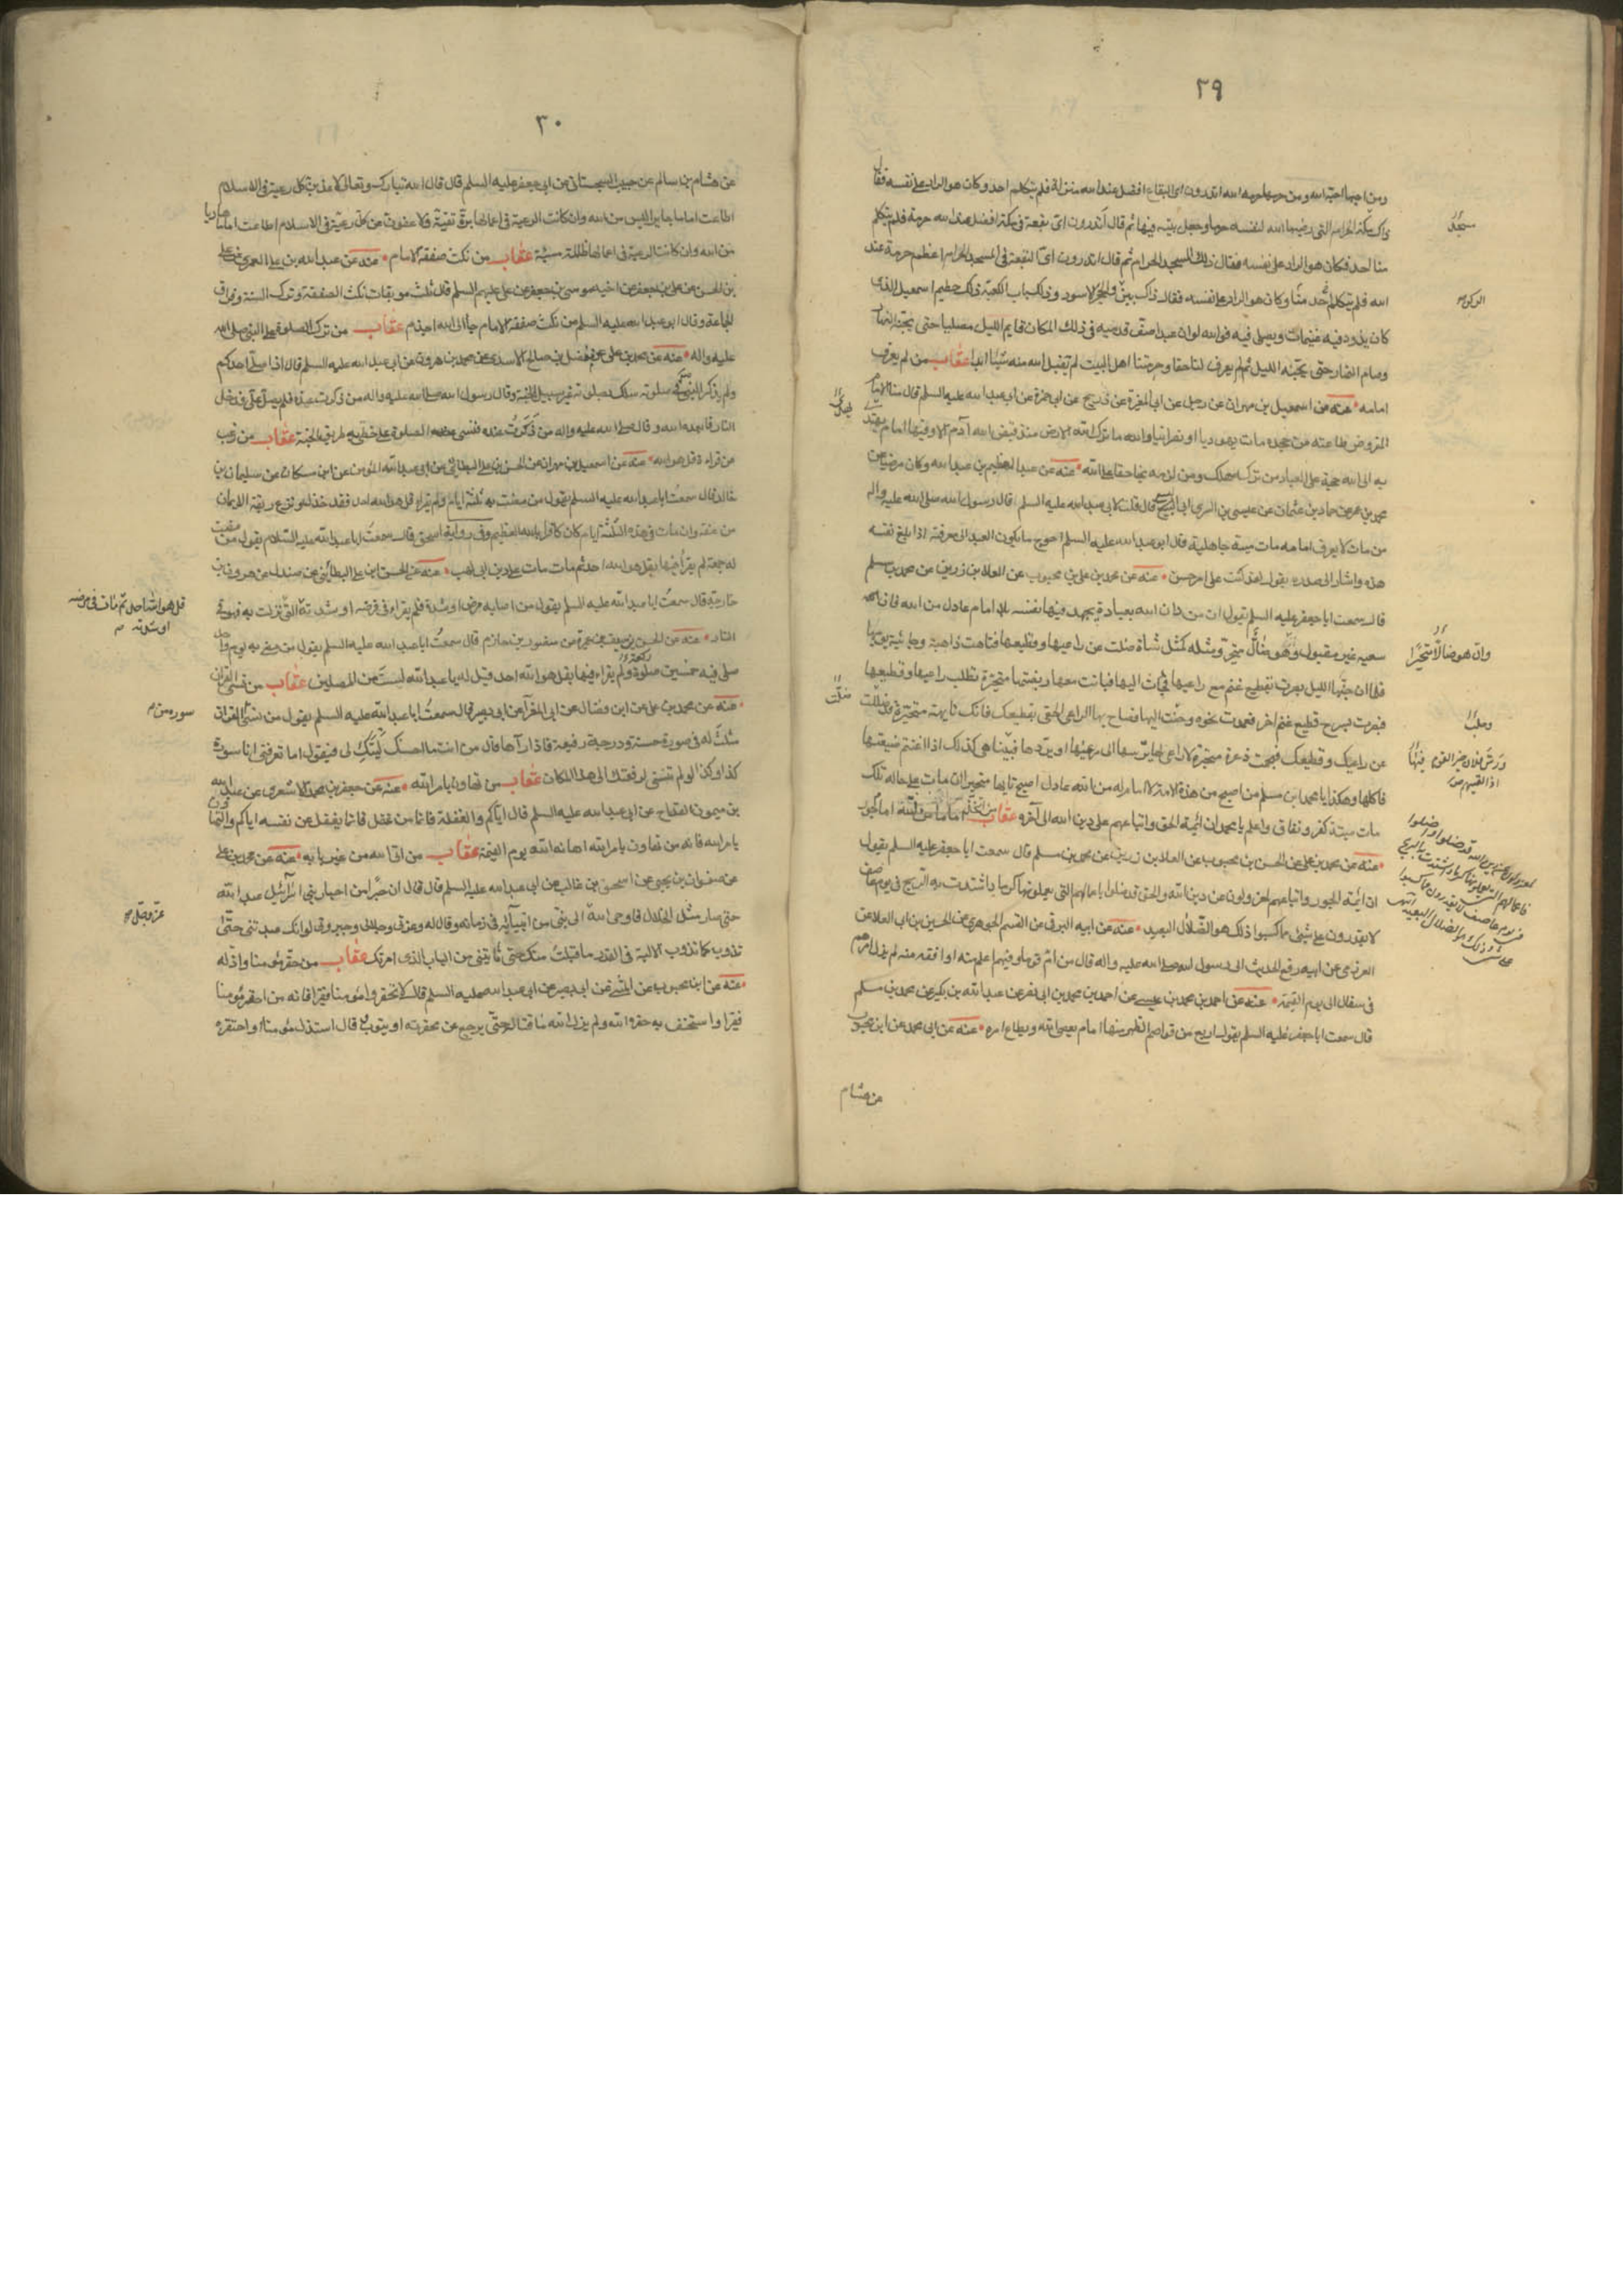 ٢٩
ومن احبها احبه الله ومن حرمها حرمه الله اتدرون اى البقاع افضل عند الله منزلة فلم يتكلم احد وكان هو الراد على نفسه فقال
ذاك مكة الحرام التى رضيها الله لنفسه حرما وجعل بيته فيها ثم قال اتدرون اى بقعة فى مكة افضل عند الله حرمة فلم يتكلم
منا احد فكان هو الراد على نفسه فقال ذلك المسجد الحرام ثم قال اتدرون اى البقعة فى المسجد الحرام اعظم حرمة عند
الله فلم يتكلم احد منا وكان هو الراد على نفسه فقال ذاك بين والحجر الاسود وذلك باب الكعبة ذلك حطيم اسمعيل الذى
كان يذود فيه غنيمات ويصلى فيه فوالله لو ان عبدا صف قدميه فى ذلك المكان قايم الليل مصليا حتى يجنه النهار
وصام النهار حتى يجنه الليل ثم لم يعرف لنا حقا وحرمتنا اهل البيت لم يقبل الله منه شيئا ابدا عقاب من لم يعرف
امامه عنه عن اسمعيل بن مهران عن رجل عن ابى المغرة عن ذريح عن ابى حمزة عن ابى عبد الله عليه السلم قال منا الامام
المفروض طاعته من جحده مات يهوديا او نصرانيا والله ما ترك الله الارض منذ قبض الله آدم الا وفيها امام يهتدى
به الى الله حجة على العباد من تركه هلك ومن لزمه نجا حقا على الله عنه عن عبد العظيم بن عبد الله وكان مرضيا عن
محمد بن عمر عن حماد بن عثمان عن عيسى بن السرى ابى اليسع قال قلت لابى عبد الله عليه السلم قال رسول الله صلى الله عليه واله
من مات لا يعرف امامه مات ميتة جاهلية قال ابو عبد الله عليه السلم احوج ما يكون العبد الى معرفته اذا بلغ نفسه
هذه واشار الى صدره يقول لقد كنت على امر حسن عنه عن محمد بن على بن محبوب عن العلا بن زرين عن محمد بن مسلم
قال سمعت ابا جعفر عليه السلم يقول ان من دان الله بعبادة يجهد فيها نفسه بلا امام عادل من الله فان
سعيه غير مقبول وهو ضال متحير ومثله كمثل شاة ضلت عن راعيها وقطيعها فتاهت ذاهبة وجائية يومها
فلما ان جنها الليل بصرت بقطيع غنم مع راعيها فجات اليها فباتت معها وربضتها متحيرة تطلب راعيها وقطيعها
فبصرت بسرح قطيع غنم اخر فعمدت نحوه وحنت اليها فصاح بها الراعى الحقى بقطيعك فانك تايهة متحيرة قد ضللت
عن راعيك وقطيعك فهجمت ذعرة متحيرة لا راعى لها يرشدها الى مرعيها او يردها فبينا هى كذلك اذا اغتنم ضيعتها
فاكلها وهكذا يا محمد ابن مسلم من اصبح من هذه الامة لا امام له من الله عادل اصبح تايها متحيرا ان مات على حاله تلك
مات ميتة كفر ونفاق واعلم يا محمد ان ائمة الحق واتباعهم على دين الله الى آخره عقاب من اتخذ اماما من الله امام جور
عنه عن محمد بن على عن الحسن بن محبوب عن العلا بن زرين عن محمد بن مسلم قال سمعت ابا جعفر عليه السلم يقول
ان ائمة الجور واتباعهم لمعزولون عن دين الله والحق قد ضلوا باعمالهم التى يعملونها كرماد اشتدت به الريح فى يوم عاصف
لا يقدرون على شىء مما كسبوا ذلك هو الضلال البعيد عنه عن ابيه البرقى عن القسم الجوهرى عن الحسين بن ابى العلا عن
العزرمى عن ابيه رفع الحديث الى رسول الله صلى الله عليه واله قال من ام قوما وفيهم اعلم منه او افقه منه لم يزل امرهم
فى سفال الى يوم القيمة عنه عن احمد بن محمد بن عيسى عن احمد بن محمد بن ابى نصر عن عبد الله بن بكير عن محمد بن مسلم
قال سمعت ابا جعفر عليه السلم يقول اربع من قواصم الظهر منها امام يعصى الله ويطاع امره عنه عن ابى محمد عن ابن محبوب
عن هشام
مسجد
الركن
وان هو ضالا متحيرا
ضلت
٣٠
عن هشام بن سالم عن حبيب السجستانى عن ابى جعفر عليه السلم قال قال الله تبارك وتعالى لاعذبن كل رعية فى الاسلام
اطاعت اماما جايرا ليس من الله وان كانت الرعية فى اعمالها برة تقية ولاعفون عن كل رعية فى الاسلام اطاعت اماما هاديا
من الله وان كانت الرعية فى اعمالها ظالمة مسيئة عقاب من نكث صفقة الامام عنه عن عبد الله بن على العمرى عن على
بن الحسن عن على بن جعفر عن اخيه موسى بن جعفر عن على عليهم السلم قال ثلث موبقات نكث الصفقة وترك السنة وفراق
الجماعة وقال ابو عبد الله عليه السلم من نكث صفقة الامام جا الى الله اجذم عقاب من ترك الصلوة على النبى صلى الله
عليه واله عنه عن محمد بن على عن مفضل بن صالح الاسدى عن محمد بن هرون عن ابى عبد الله عليه السلم قال اذا صلى احدكم
ولم يذكر النبى فى صلوته سلك بصلوته غير سبيل الجنة وقال رسول الله صلى الله عليه واله من ذكرت عنده فلم يصل على فدخل
النار فابعده الله وقال صلى الله عليه واله من ذكرت عنده فنسى الصلوة على خطى به طريق الجنة عقاب من رغب
عن قراءة قل هو الله عنه عن اسمعيل بن مهران عن الحسن بن على البطائنى عن ابى عبد الله المؤمن عن ابن مسكان عن سليمان بن
خالد قال سمعت ابا عبد الله عليه السلم يقول من مضت به ثلثة ايام ولم يقرا قل هو الله احد فقد خذل ونزع ربقة الايمان
من عنقه وان مات فى هذه الثلثة ايام كان كافرا بالله العظيم وفى رواية اسحق قال سمعت ابا عبد الله عليه السلام يقول من مضت
له جمعة لم يقرا فيها بقل هو الله احد ثم مات مات على دين ابى لهب عنه عن الحسن ابن على البطائنى عن صندل عن هرون بن
خارجة قال سمعت ابا عبد الله عليه السلم يقول من اصابه مرض او شدة فلم يقرا فى مرضه او شدته التى نزلت به فهو فى
النار عنه عن الحسن بن سيف بن عميرة عن منصور بن حازم قال سمعت ابا عبد الله عليه السلم يقول من مضى به يوم واحد
صلى فيه خمسين صلوة ولم يقراء فيها بقل هو الله احد قيل له يا عبد الله لست من المصلين عقاب من نسى القرآن
عنه عن محمد بن على عن ابن فضال عن ابى المغرا عن ابى بصير قال سمعت ابا عبد الله عليه السلم يقول من نسى القرآن
مثلت له فى صورة حسنة ودرجة رفيعة فاذا رآها قال من انت ما احسنك ليتك لى فيقول اما تعرفنى انا سورة
كذا وكذا لو لم تنسنى لرفعتك الى هذا المكان عقاب من تهاون بامر الله عنه عن جعفر بن محمد الاشعرى عن عبد الله
بن ميمون القداح عن ابى عبد الله عليه السلم قال اياكم والغفلة فانما من غفل فانما يغفل عن نفسه اياكم والتهاون
بامر الله فانه من تهاون بامر الله اهانه الله يوم القيمة عقاب من اتى الله من غير بابه عنه عن محمد بن على
عن صفوان بن يحيى عن اسحق بن غالب عن ابى عبد الله عليه السلم قال قال ان حبرا من احبار بنى اسرآئيل عبد الله
حتى صار مثل الخلال فاوحى الله الى نبى من انبيآئه فى زمانه وقال له وعزتى وجلالى وجبروتى لو انك عبدتنى حتى
تذوب كما تذوب الالية فى القدر ما قبلت منك حتى تاتينى من الباب الذى امرتك عقاب من حقر مؤمنا واذله
عنه عن ابن محبوب عن المثنى عن ابى بصير عن ابى عبد الله عليه السلم قال لا تحقروا مؤمنا فقيرا فانه من احقر مؤمنا
فقيرا واستخف به حقره الله ولم يزل الله ماقتا له حتى يرجع عن محقرته او يتوب قال استذل مؤمنا او احتقره
قل هو الله احد ثم مات فى مرضه
او شدته
سورة من
عز وجل